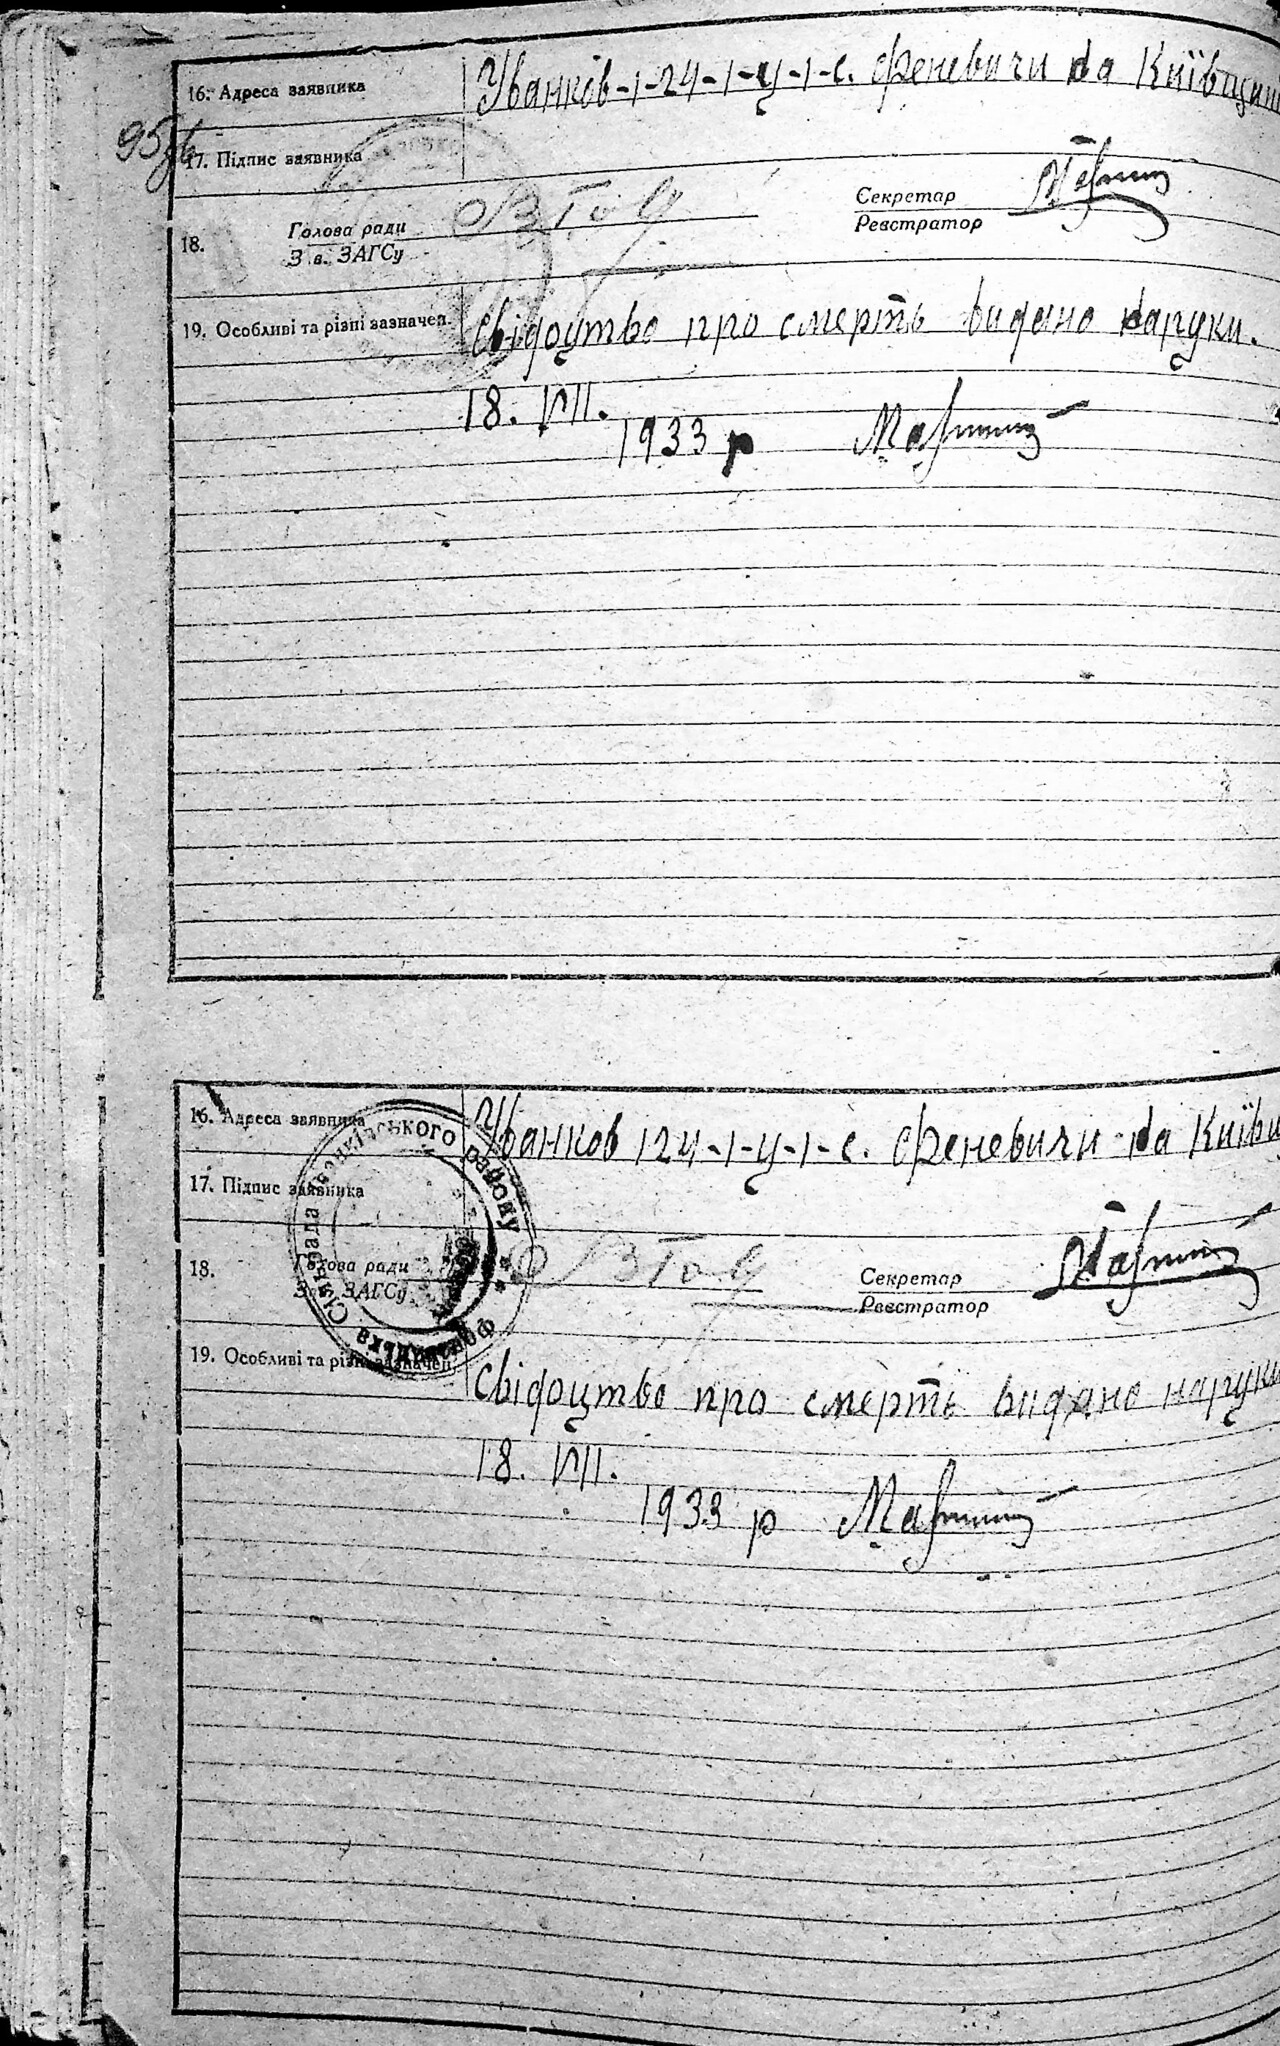 16. Адреса заявника Іванків-1-24-1-У-1-с. Феневичи на Київщині
95зв
17. Підпис заявника
18. Голова ради
З в. ЗАГСу
Секретар
Реєстратор
19. Особливі та різні зазначен. Свідоцтво про смерть видано наруки.
18. VII.
1933 р
16. Адреса заявника Іванков 124-1-У-1-с. Феневичи на Київщ
17. Підпис заявника
18. Голова ради
З в. ЗАГСу
Секретар
Реєстратор
Сільрада Іванківського району
19. Особливі та різні зазначен. Свідоцтво про смерть видано наруки
18. VII.
1933 р